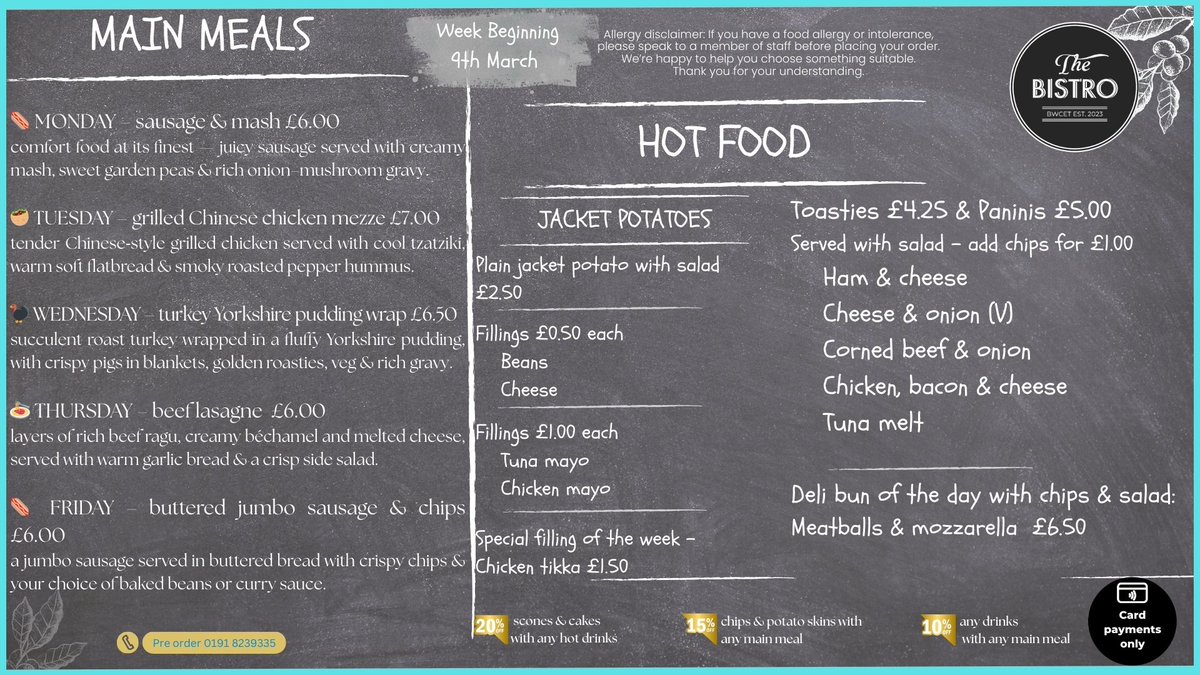 MAIN MEALS
Week Beginning
9th March
Allergy disclaimer: If you have a food allergy or intolerance,
please speak to a member of staff before placing your order.
We're happy to help you choose something suitable.
Thank you for your understanding.
The
BISTRO
BWCET EST. 2023
MONDAY – sausage & mash £6.00
comfort food at its finest — juicy sausage served with creamy
mash, sweet garden peas & rich onion–mushroom gravy.
TUESDAY – grilled Chinese chicken mezze £7.00
tender Chinese-style grilled chicken served with cool tzatziki,
warm soft flatbread & smoky roasted pepper hummus.
WEDNESDAY – turkey Yorkshire pudding wrap £6.50
succulent roast turkey wrapped in a fluffy Yorkshire pudding,
with crispy pigs in blankets, golden roasties, veg & rich gravy.
THURSDAY – beef lasagne £6.00
layers of rich beef ragu, creamy béchamel and melted cheese,
served with warm garlic bread & a crisp side salad.
FRIDAY – buttered jumbo sausage & chips
£6.00
a jumbo sausage served in buttered bread with crispy chips &
your choice of baked beans or curry sauce.
Pre order 0191 8239335
HOT FOOD
JACKET POTATOES
Plain jacket potato with salad
£2.50
Fillings £0.50 each
Beans
Cheese
Fillings £1.00 each
Tuna mayo
Chicken mayo
Special filling of the week –
Chicken tikka £1.50
Toasties £4.25 & Paninis £5.00
Served with salad – add chips for £1.00
Ham & cheese
Cheese & onion (V)
Corned beef & onion
Chicken, bacon & cheese
Tuna melt
Deli bun of the day with chips & salad:
Meatballs & mozzarella £6.50
20% OFF scones & cakes
with any hot drinks
15% OFF chips & potato skins with
any main meal
10% OFF any drinks
with any main meal
Card
payments
only